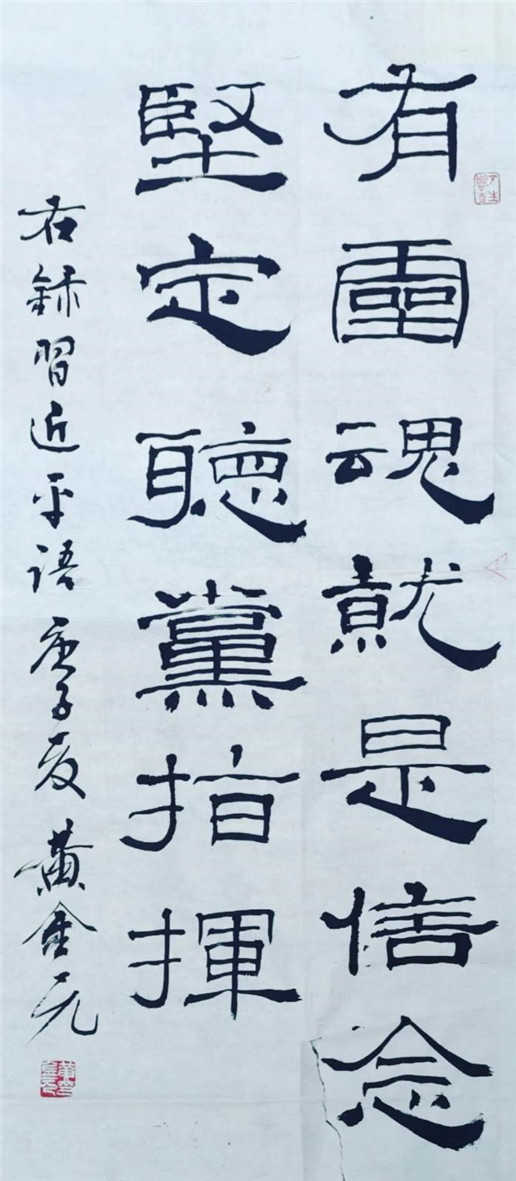 有靈魂就是信念
堅定聽黨指揮
右録習近平語庚子夏黄金元